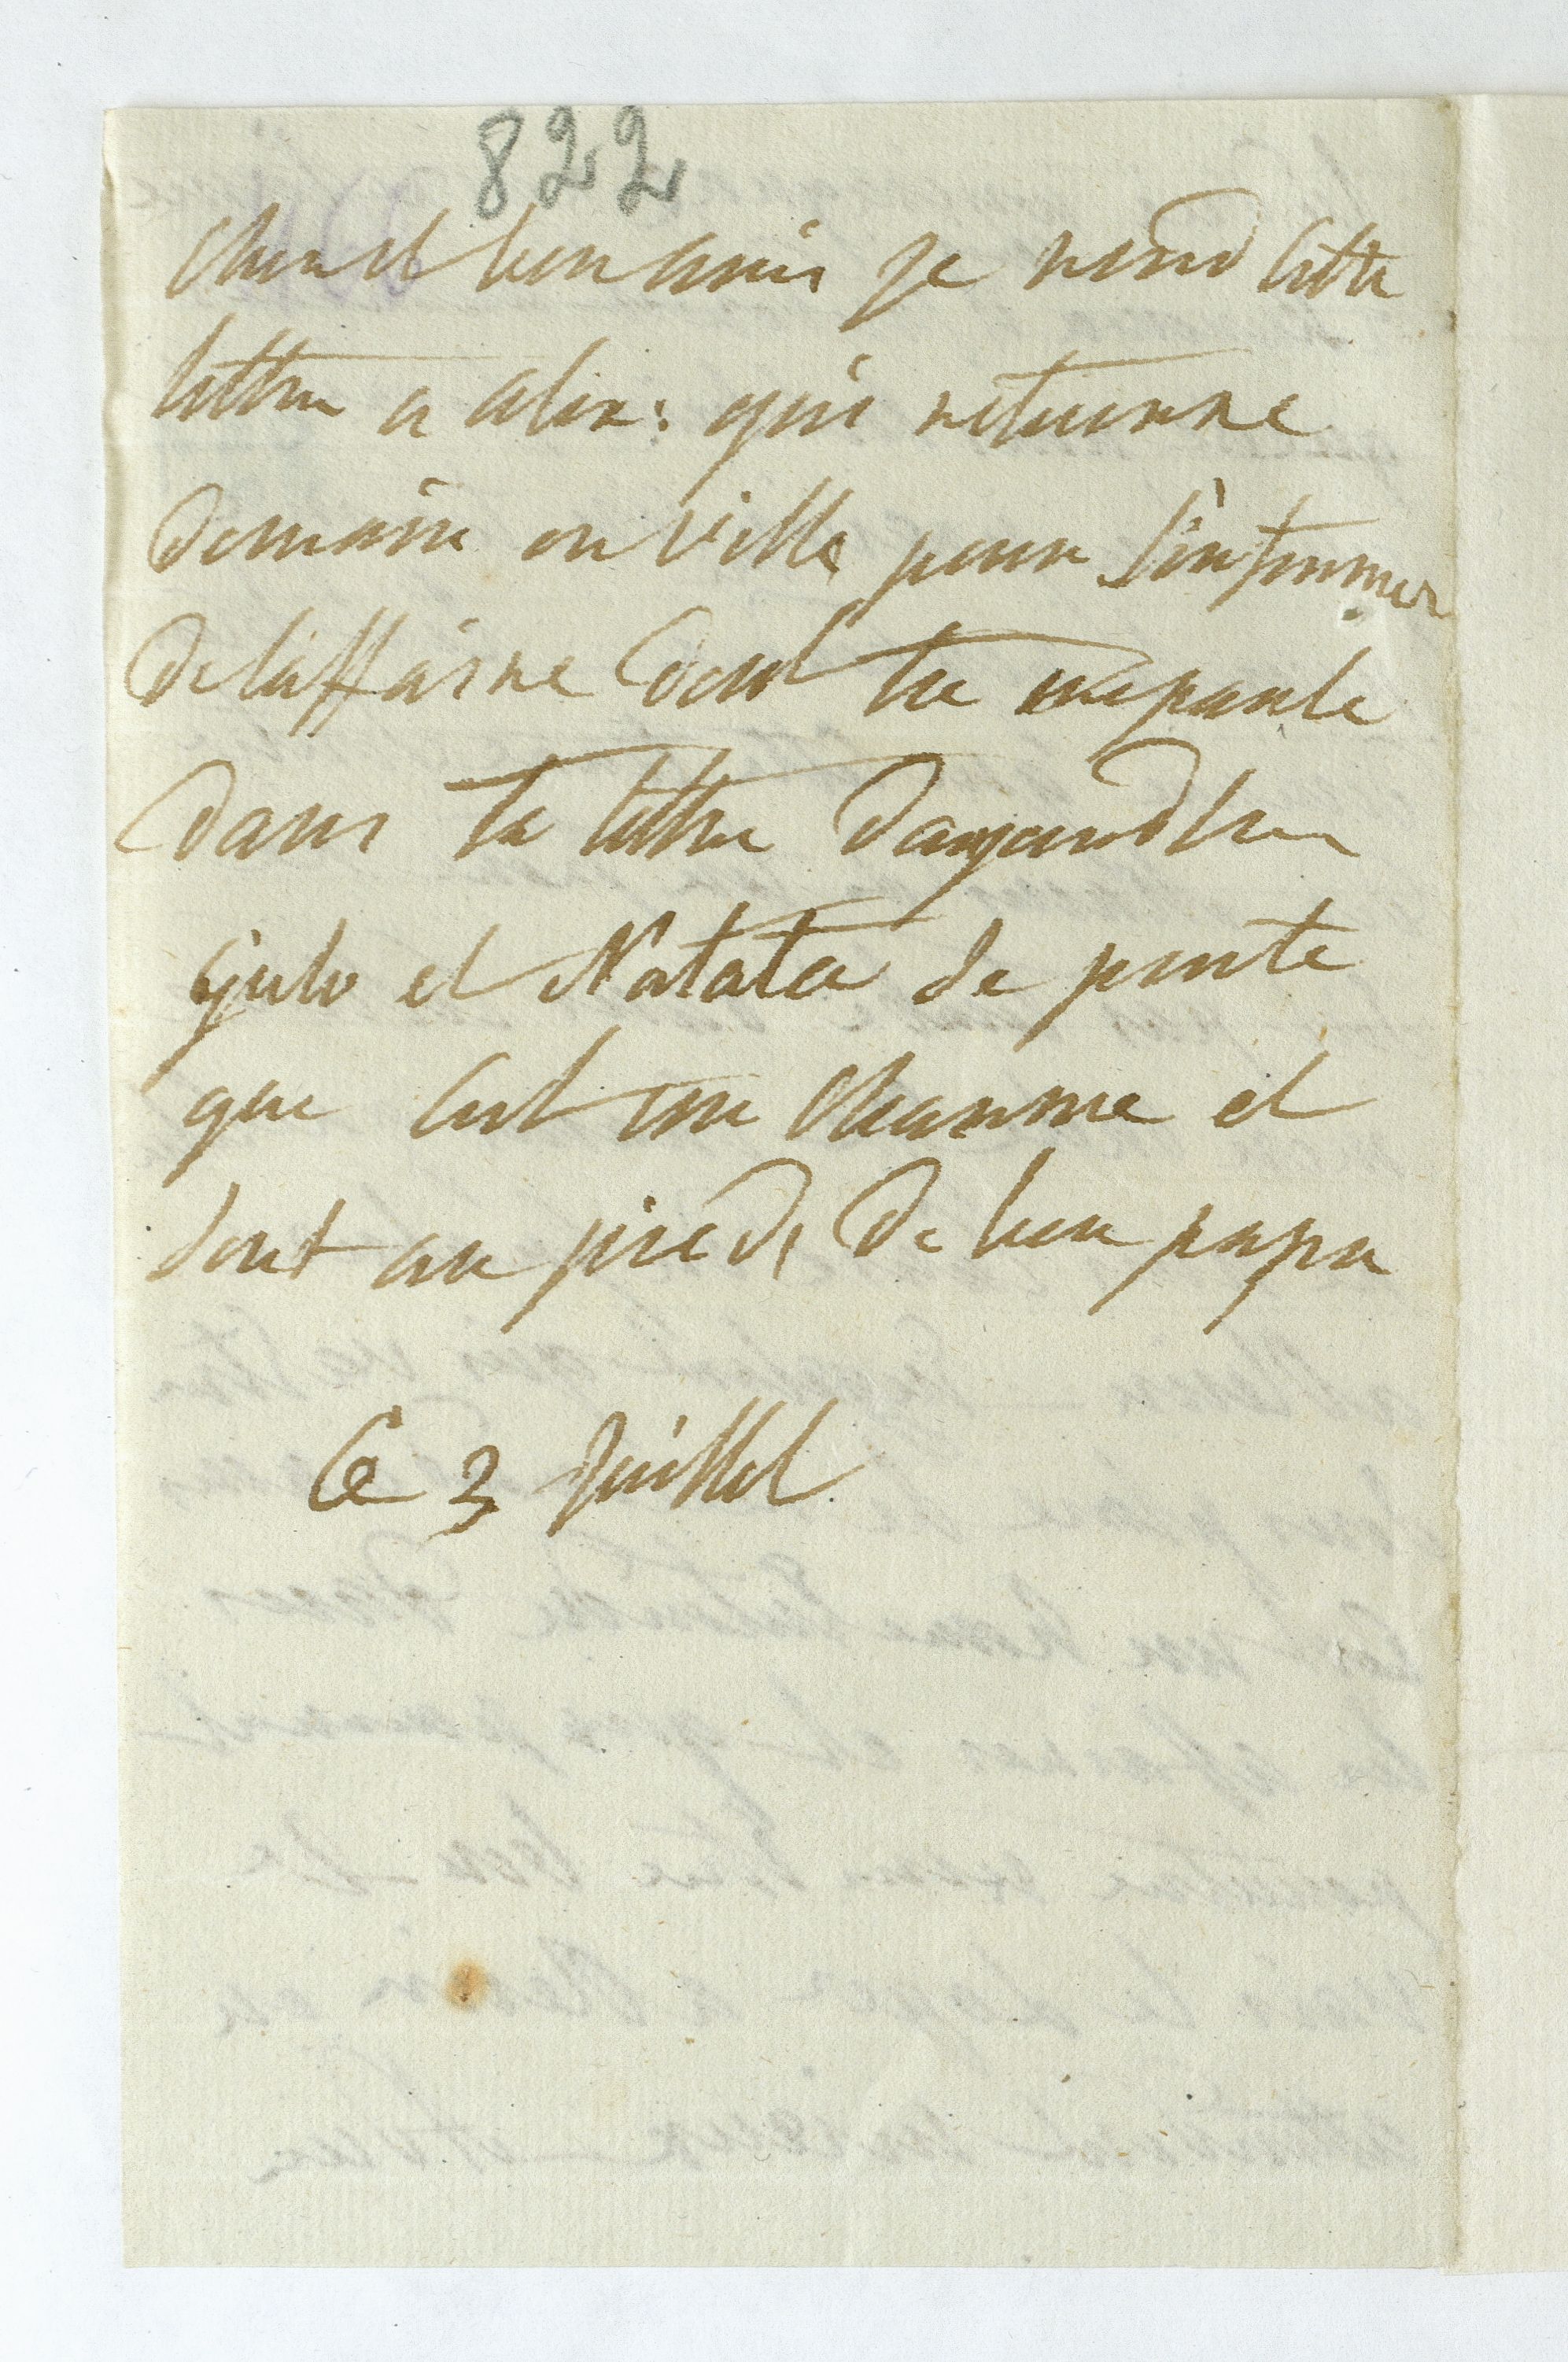 822
Cher et bon ami je remd cette
lettre a alex: qui retourne
demain en ville pour s'informer
de laffaire dont tu me parle
dans ta lettre daujourdhui
Gulo et Natata se porte
que cest un charme et
sont au pieds de bon papa
Ce 3 Juillet